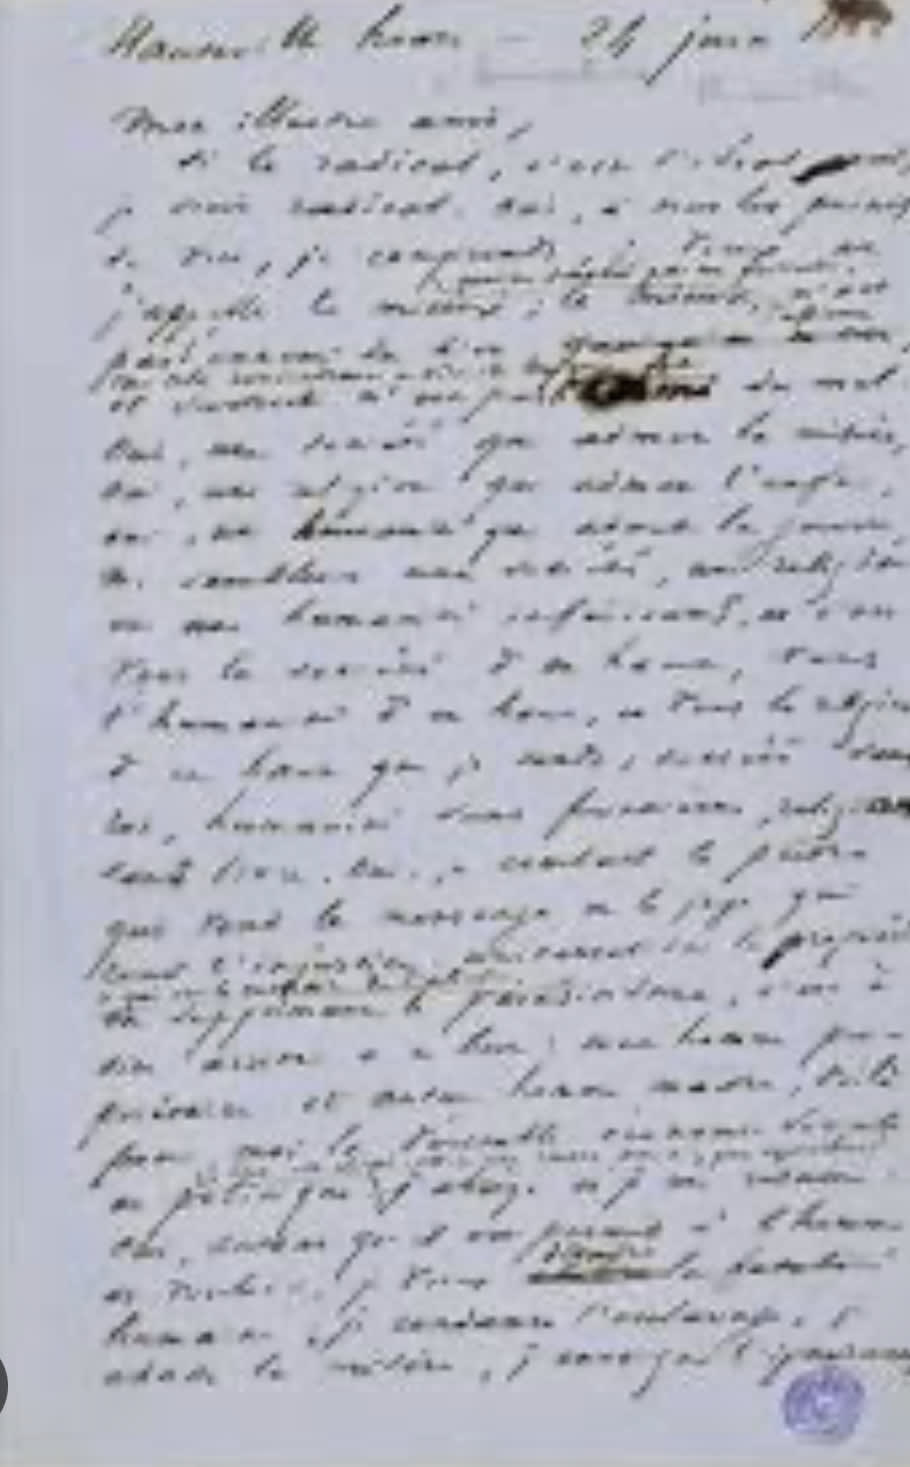 Hauteville house - 24 juin
Mon illustre ami,
Si le radical, c'est l'idéal, oui,
je suis radical. Oui, à tous les points
de vue, je comprends, je veux et
j'appelle le mieux ; le mieux, n'est
pas l'ennemi du bien
du mal.
Oui, une société qui admet la misère,
oui, une religion qui admet l'enfer,
oui, une humanité qui admet la guerre,
me semblent une société, une religion
et une humanité inférieures, et c'est
vers la société d'en haut, vers
l'humanité d'en haut, et vers la religion
d'en haut que je tends, société sans
roi, humanité sans frontières, religion
sans livre. Oui, je combats le prêtre
qui vend le mensonge et le juge qui
rend l'injustice. universaliser la propriété
en supprimant le parasitisme, c'est à
dire arriver à ce but : tout homme pro-
priétaire et aucun homme maître, voilà
pour moi la véritable économie sociale
et politique. j'abrège. et je me résume.
Oui, autant qu'il est permis à l'homme
de vouloir, je veux détruire la fatalité
humaine, je condamne l'esclavage, je
chasse la misère, j'enseigne l'ignorance